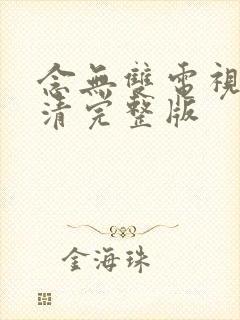 念無雙電視
清完整版
金海珠